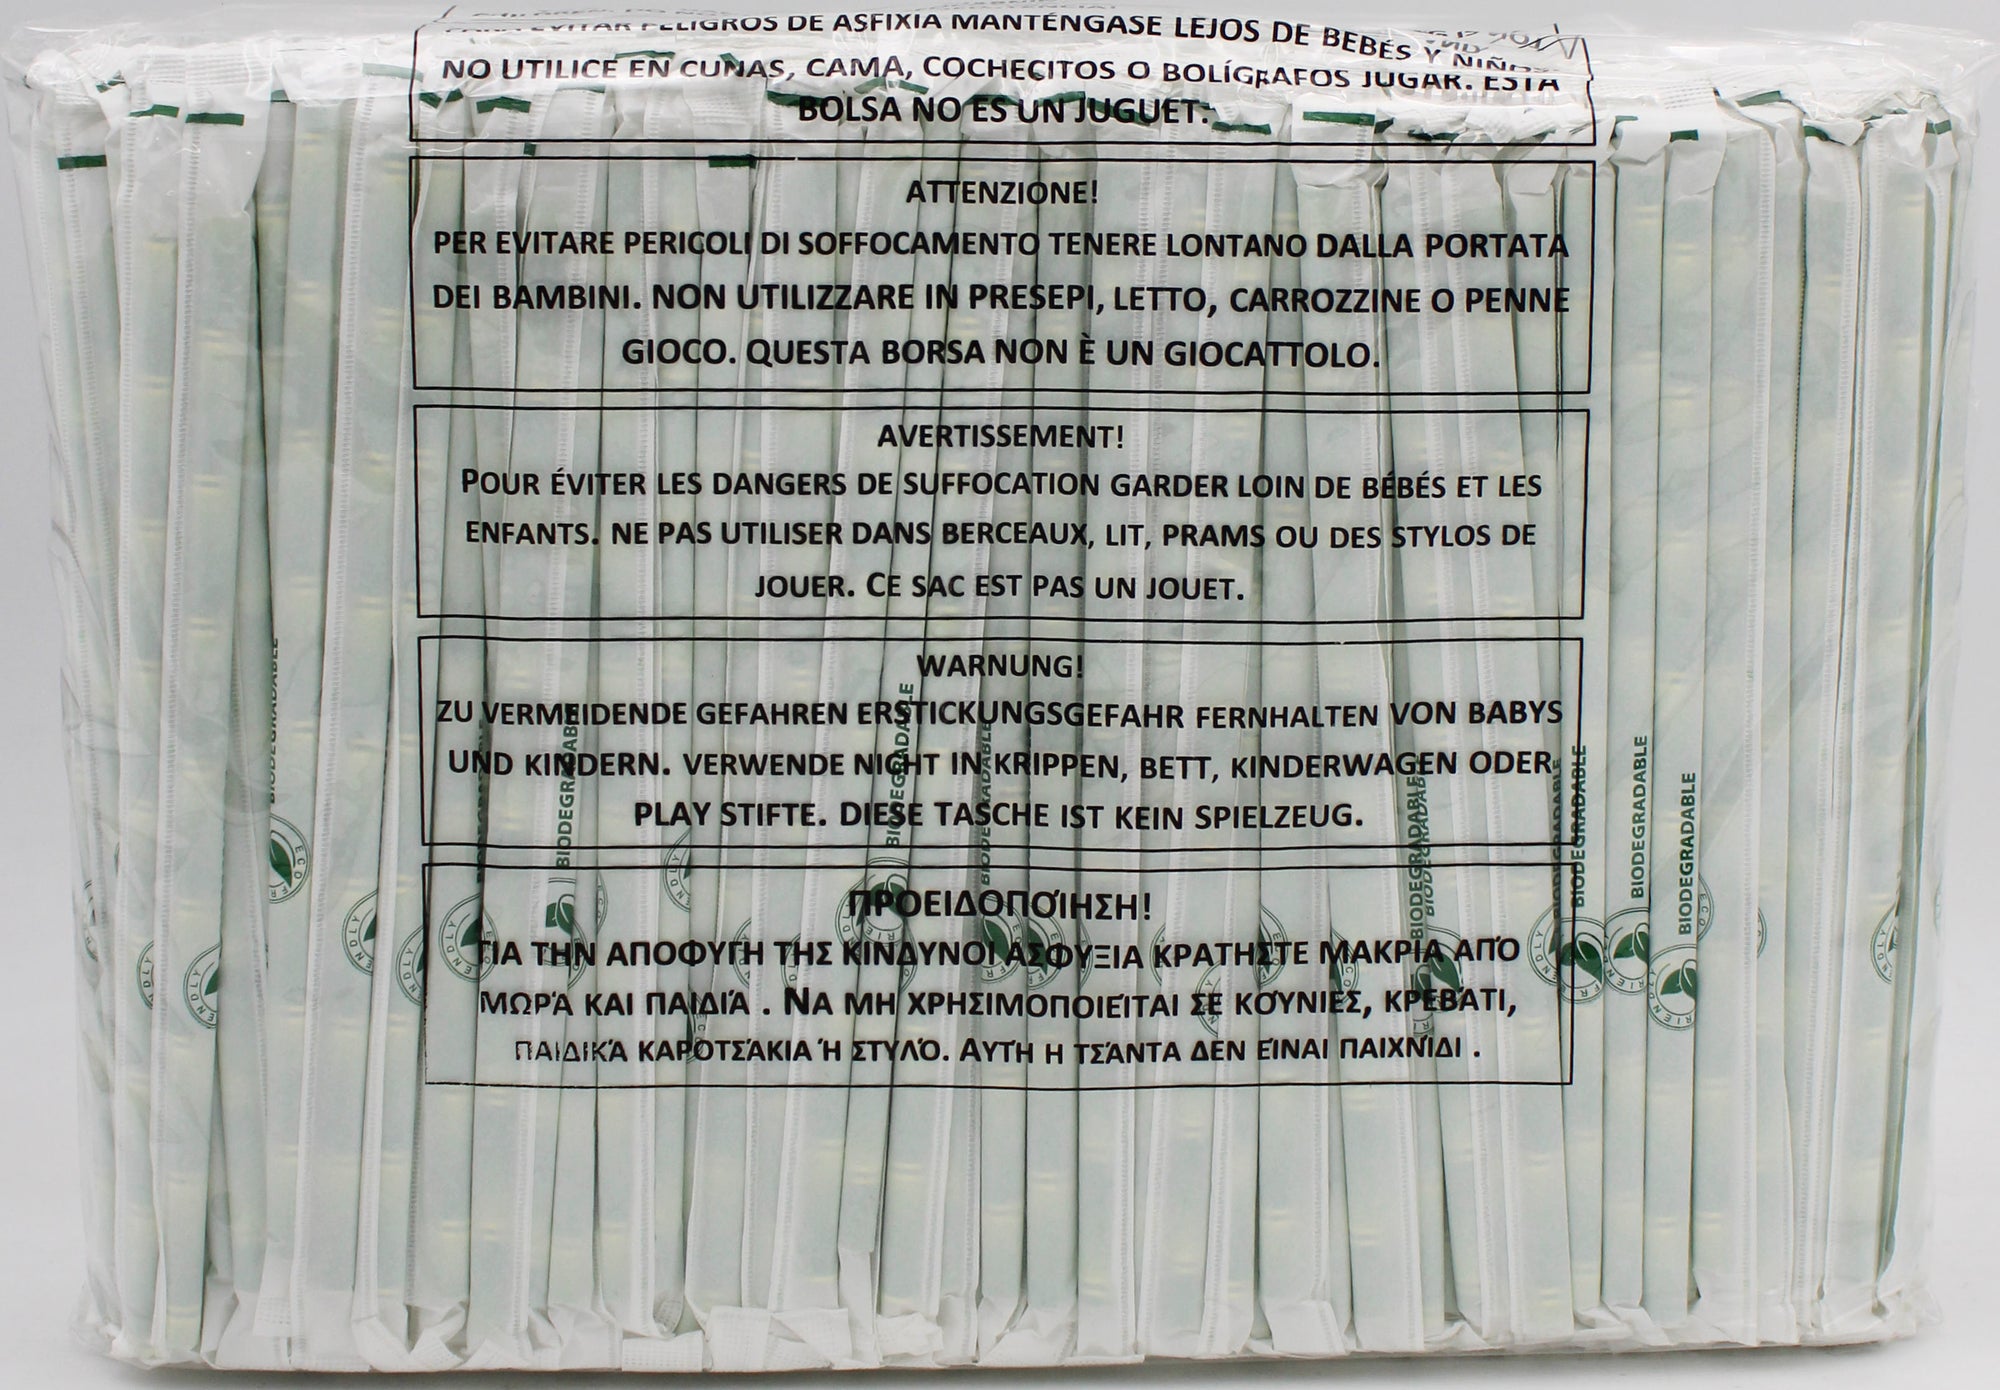 PARA EVITAR PELIGROS DE ASFIXIA MANTÉNGASE LEJOS DE BEBÉS Y NIÑOS
NO UTILICE EN CUNAS, CAMA, COCHECITOS O BOLÍGRAFOS JUGAR. ESTA
BOLSA NO ES UN JUGUET.
ATTENZIONE!
PER EVITARE PERICOLI DI SOFFOCAMENTO TENERE LONTANO DALLA PORTATA
DEI BAMBINI. NON UTILIZZARE IN PRESEPI, LETTO, CARROZZINE O PENNE
GIOCO. QUESTA BORSA NON È UN GIOCATTOLO.
AVERTISSEMENT!
POUR ÉVITER LES DANGERS DE SUFFOCATION GARDER LOIN DE BÉBÉS ET LES
ENFANTS. NE PAS UTILISER DANS BERCEAUX, LIT, PRAMS OU DES STYLOS DE
JOUER. CE SAC EST PAS UN JOUET.
WARNUNG!
ZU VERMEIDENDE GEFAHREN ERSTICKUNGSGEFAHR FERNHALTEN VON BABYS
UND KINDERN. VERWENDE NICHT IN KRIPPEN, BETT, KINDERWAGEN ODER
PLAY STIFTE. DIESE TASCHE IST KEIN SPIELZEUG.
ΠΡΟΕΙΔΟΠΟΊΗΣΗ!
ΓΙΑ ΤΗΝ ΑΠΟΦΥΓΗ ΤΗΣ ΚΙΝΔΥΝΟΙ ΑΣΦΥΞΙΑ ΚΡΑΤΗΣΤΕ ΜΑΚΡΙΑ ΑΠΌ
ΜΩΡΆ ΚΑΙ ΠΑΙΔΙΆ . ΝΑ ΜΗ ΧΡΗΣΙΜΟΠΟΙΕΊΤΑΙ ΣΕ ΚΟΎΝΙΕΣ, ΚΡΕΒΆΤΙ,
ΠΑΙΔΙΚΆ ΚΑΡΟΤΣΆΚΙΑ Ή ΣΤΥΛΌ. ΑΥΤΉ Η ΤΣΆΝΤΑ ΔΕΝ ΕΊΝΑΙ ΠΑΙΧΝΊΔΙ .
BIODEGRADABLE
BIODEGRADABLE
BIODEGRADABLE
BIODEGRADABLE
BIODEGRADABLE
BIODEGRADABLE
BIODEGRADABLE
ECO FRIENDLY